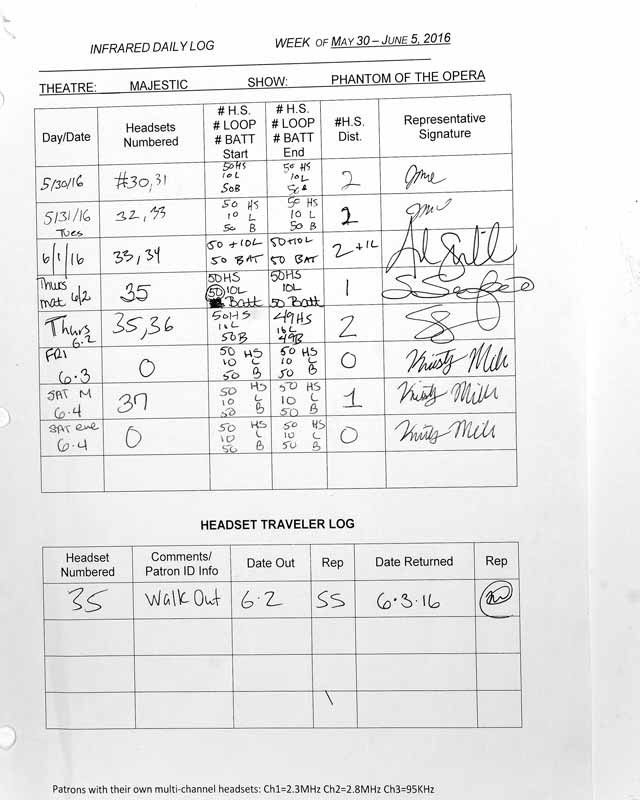 INFRARED DAILY LOG WEEK OF MAY 30 – JUNE 5, 2016
THEATRE: MAJESTIC SHOW: PHANTOM OF THE OPERA
Day/Date
Headsets Numbered
# H.S. # LOOP # BATT Start
# H.S. # LOOP # BATT End
#H.S. Dist.
Representative Signature
5/30/16 #30,31 50HS 10L 50B 50 HS 10L 50B 2
5/31/16 Tues 32,33 50 HS 10 L 50 B 50 HS 10 L 50 B 2
6/1/16 33,34 50 +10L 50 BAT 50+10L 50 BAT 2 +1L
Thurs mat 6/2 35 50HS 50 10L Batt 50HS 10L 50 Batt 1
Thurs 6.2 35,36 50HS 10L 50B 49HS 10L 49B 2
FRI 6.3 0 50 HS 10 L 50 B 50 HS 10 L 50 B 0 Kristy Mill
SAT M 6.4 37 50 HS 10 L 50 B 50 HS 10 L 50 B 1 Kristy Mill
SAT eve 6.4 0 50 HS 10 L 50 B 50 HS 10 L 50 B 0 Kristy Mill
HEADSET TRAVELER LOG
Headset Numbered
Comments/ Patron ID Info
Date Out
Rep
Date Returned
Rep
35 Walk Out 6.2 SS 6.3.16
Patrons with their own multi-channel headsets: Ch1=2.3MHz Ch2=2.8MHz Ch3=95KHz